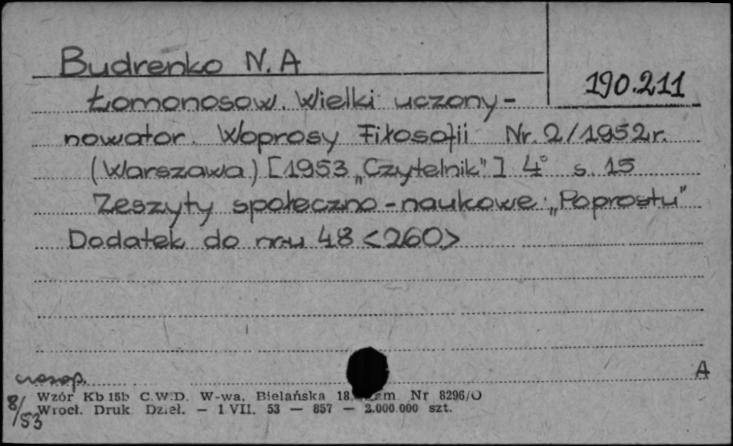 Budrenko N.A
190.211
Łomonosow. Wielki uczony-
nowator. Woprosy Fiłosofii Nr. 2/1952r.
(Warszawa) [1953 „Czytelnik"] 4° s. 15
Zeszyty społeczno-naukowe „Poprostu"
Dodatek do nr-u 48 <260>
czasop.
A
8/53
Wzór Kb 15b C.W.D. W-wa, Bielańska 18. Zam Nr 8296/O
Wrocł. Druk Dział. — 1 VII. 53 — 857 — 2.000.000 szt.